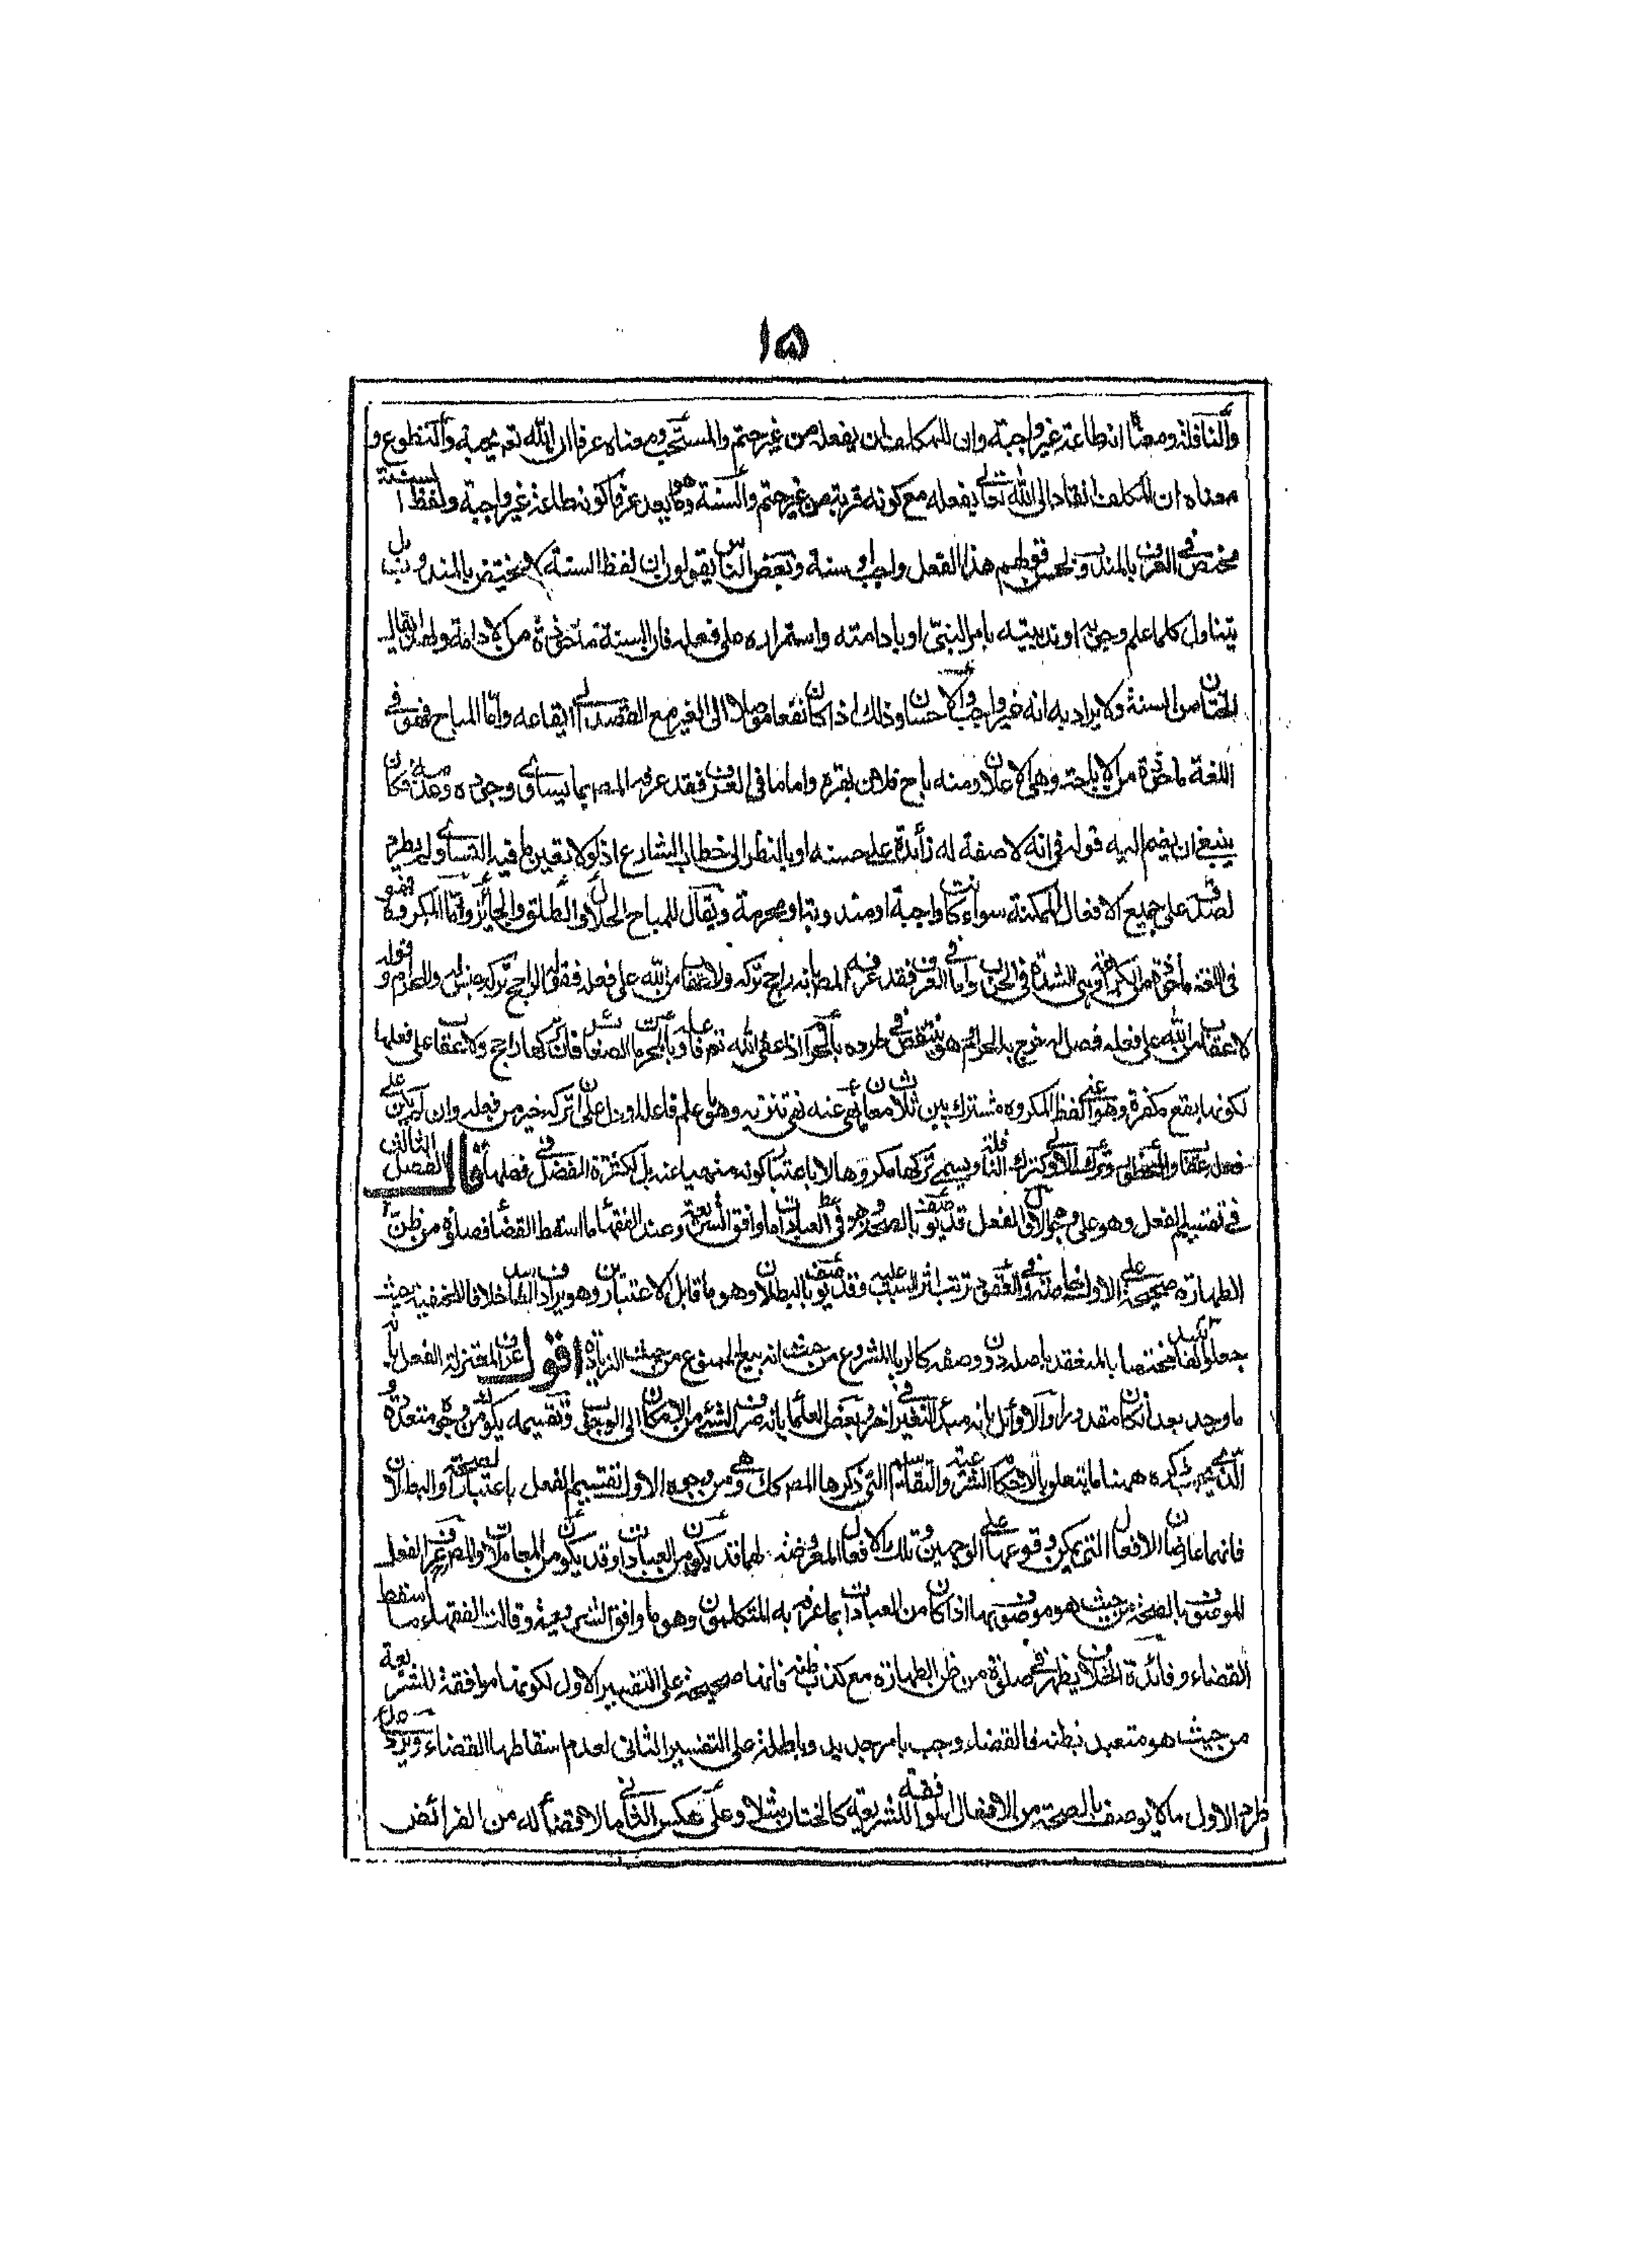 ١٥
والنافلة ومعناها انها طاعة غير واجبة وان للمكلف ان يفعله من غير حتم والمستحب ومعناه عرفا ان الله تعم يحبه والتطوع و
معناه ان المكلف انقاد الى الله تعالى بفعله مع كونه قربة من غير حتم والسنة وهو ما يعد عرفا كونه طاعة غير واجبة ولفظ السنة
مختص في العرف بالمندوب قولهم هذا الفعل واجب او سنة وبعض الناس يقولون ان لفظ السنة لا يختص بالمندوب بل
يتناول كلما علم وجوبه او ندبيته بامر النبي او بادامته واستمراره على فعله فان السنة مأخوذة من الادامة ولهذا يقال
الختان من السنة ولا يراد به انه غير واجب والاحسان وذلك اذا كان نفعا موصلا الى الغير مع القصد الى ايقاعه واما المباح فهو في
اللغة مأخوذ من الاباحة وهي الاعلان ومنه باح فلان بسره واما في العرف فقد عرفه المصم بما يساوى وجوده وعدمه فكان
ينبغي ان يضم اليه قوله في انه لا صفة له زائدة على حسنه او بالنظر الى خطاب الشارع اذ لولا تعين ما فيه التساوى لم يطرد
لصدقه على جميع الافعال الممكنة سواء كانت واجبة او مندوبة او محرمة ويقال للمباح الحلال والطلق والجائز واما المكروه فهو
في اللغة مأخوذ من الكراهة وهي الشدة في الحرب واما في العرف فقد عرفه المصم بانه راجح تركه ولا عقاب من الله على فعله فقوله الراجح تركه جنس له وللحرام وقوله
لا عقاب من الله على فعله فصل له يخرج به الحرام وهو ينتقض في طرده بالحرام اذا عفى الله تعم عن فاعله وبالمحرمات الصغائر فان تركها راجح ولا عقاب على فعلها
لكونها يقع مكفرة وهو لفظ المكروه مشترك بين ثلاث معان ما نهى عنه نهى تنزيه وهو ما علم فاعله او دل على ان تركه خير من فعله وان لم يكن على
فعله عقاب والمحظور وترك الاولى كترك النافلة ويسمى تركها مكروها لا باعتبار كونه منهيا عنه بل لكثرة الفضل في فعلها قال الفصل الثالث
في تقسيم الفعل وهو على وجوه الاول الفعل قد يوصف بالصحة وهو في العبادات ما وافق الشريعة وعند الفقهاء ما اسقط القضاء فصلوة من ظن
الطهارة صحيحة على الاول خاصة وفي العقود ترتب اثر السبب عليه وقد يوصف بالبطلان وهو ما قابل الاعتبارين وهو يرادف الفاسد خلافا للحنفية حيث
جعلوا الفاسد مختصا بالمنعقد باصله دون وصفه كالربا المشروع من حيث انه بيع الممنوع من حيث الزيادة اقول عرف المعتزلة الفعل بانه
ما وجد بعد ان كان مقدورا والاوائل بانه مبدأ التغير في اخر وبعض العلماء بانه صرف الشيء من الامكان الى الوجوب وتقسيمه يكون من وجوه متعددة و
الذي يجب ذكره ههنا ما يتعلق بالاحكام الشرعية والتقاسيم التي ذكرها المصم كك وهي من وجوه الاول تقسيم الفعل باعتبار الصحة والبطلان
فانهما عارضان الافعال التي يمكن وقوعها على الوجهين وتلك الافعال المعروضة لهما قد يكون من العبادات وقد يكون من المعاملات والمصم عرف الفعل
الموصوف بالصحة من حيث هو موصوف بها اذا كان من العبادات بما عرفه به المتكلمون وهو ما وافق الشريعة وقالت الفقهاء ما اسقط
القضاء وفائدة الخلاف يظهر في صلوة من ظن الطهارة مع كذب ظنه فانها صحيحة على التفسير الاول لكونها موافقة للشريعة
من حيث هو متعبد بظنه فالقضاء وجب بامر جديد وباطلة على التفسير الثاني لعدم اسقاطها القضاء ويرد على
طرد الاول ما لا يوصف بالصحة من الافعال الموافقة للشريعة كالختان مثلا وعلى عكس الثاني ما لا قضاء له من الفرائض